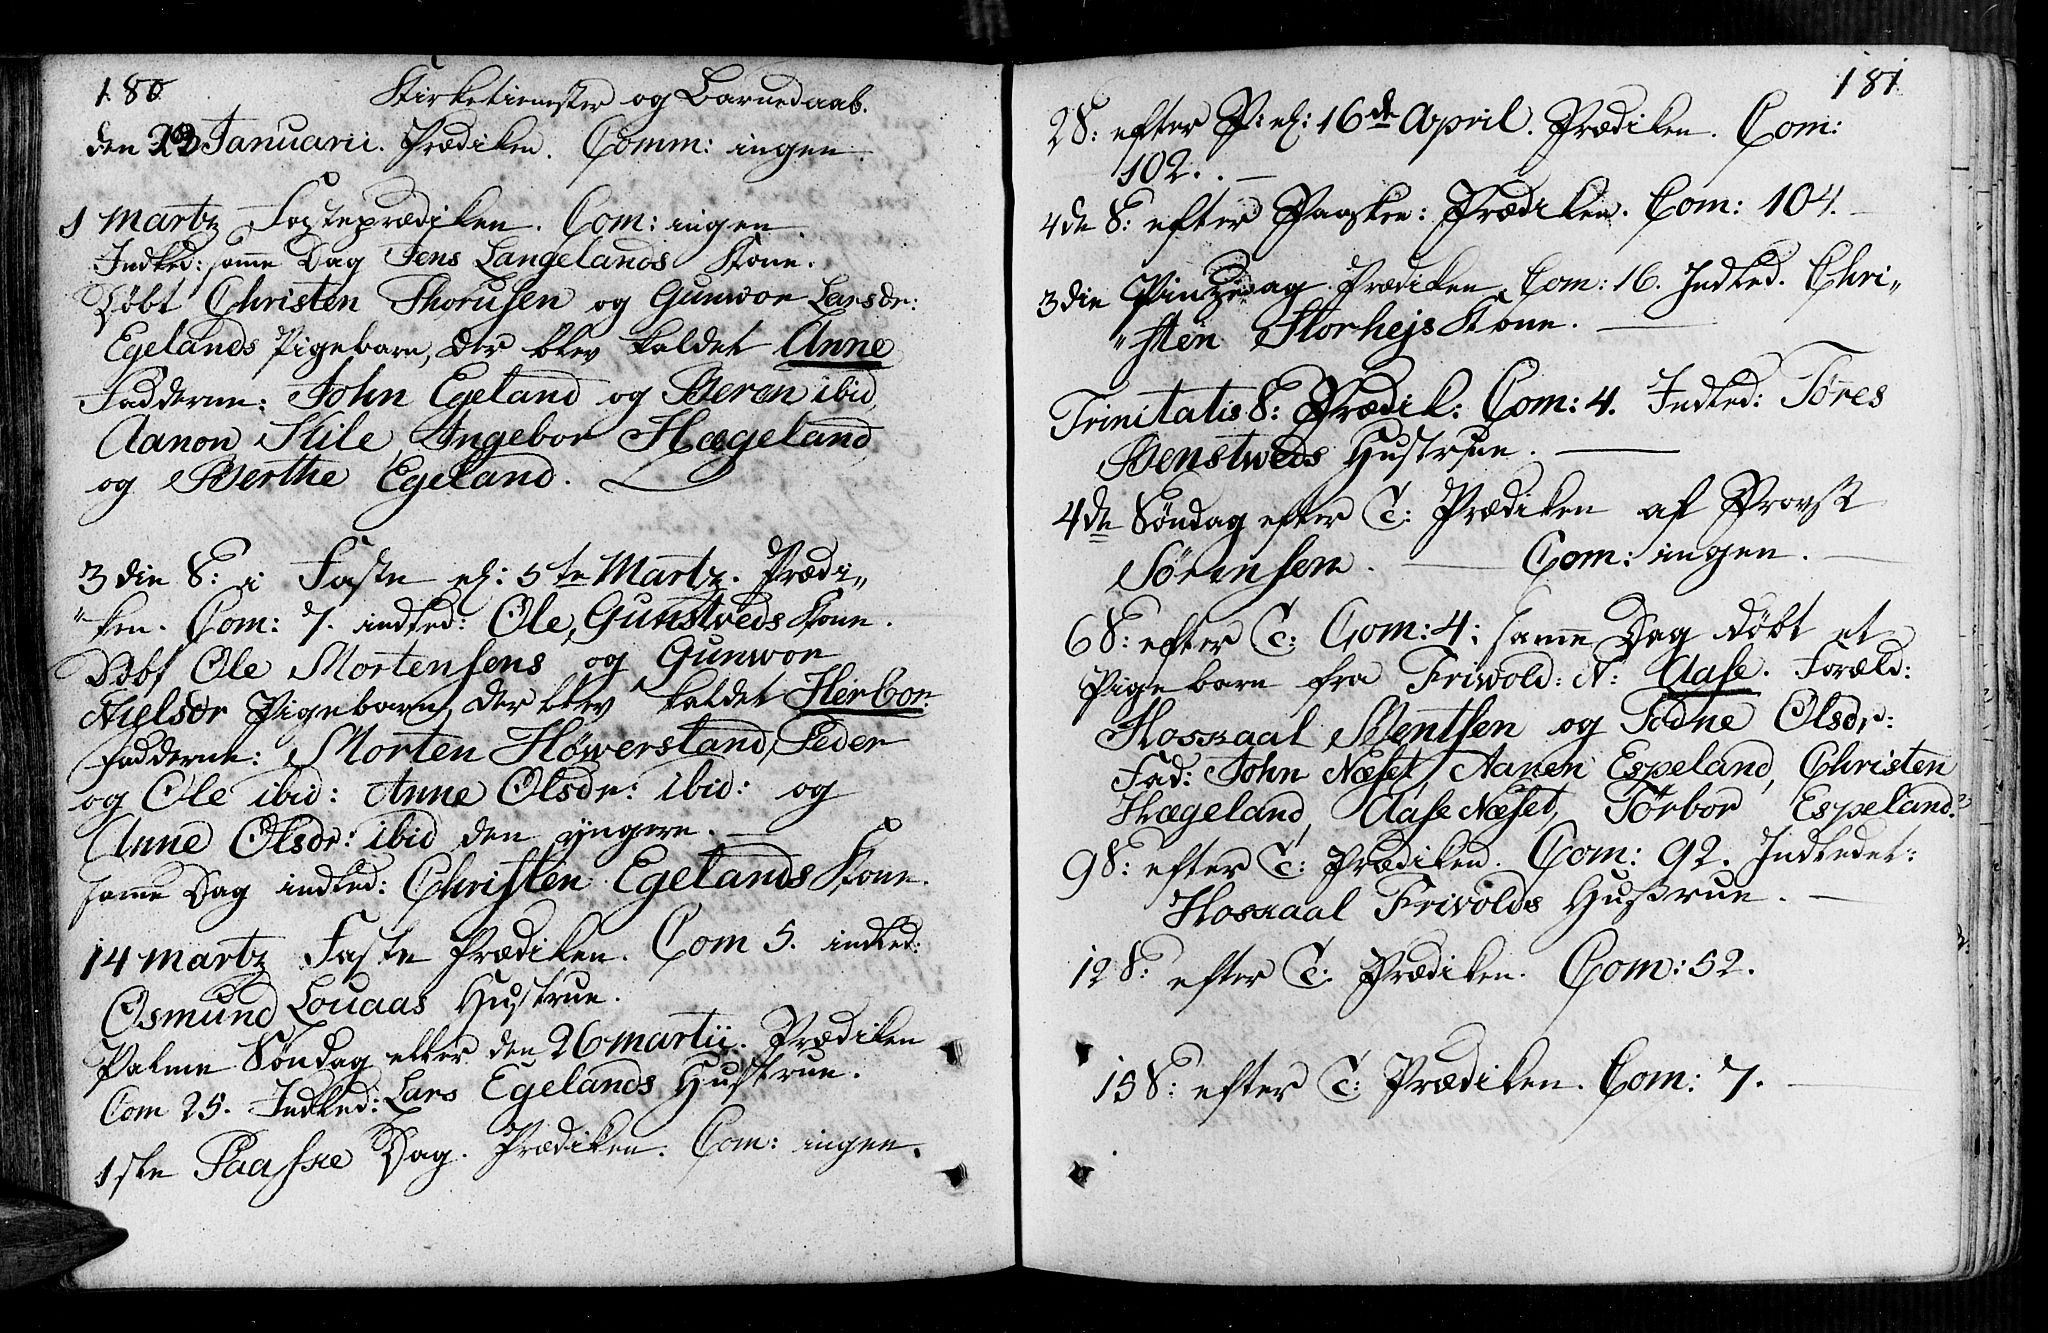 180
Kirketienester og Barnedaab.
den 23 Januarii. Prædiken. Comm: ingen.
1 Martz Fasteprædiken. Com: ingen.
Indled: samme Dag Jens Langelands Kone.
Døbt Christen Thorusen og Gunwor Larsdr:
Egelands Pigebarn, der blev kaldet Anne
Fadderne: John Egeland og Beren ibid,
Aanon Kile, Ingebor Hægeland,
og Berthe Egeland.
3die S: i Faste el: 5te Martz. Prædi„
„ken. Com: 7. indled: Ole, Gunstveds Kone.
Døbt Ole Mortensens og Gunwor
Nielsdr Pigebarn, der blev kaldet Herbor.
Fadderne: Morten Høwerstand, Peder
og Ole ibid: Anne Olsdr: ibid: og
Anne Olsdr: ibid den yngere.
samme Dag indled: Christen Egelands Kone.
14 Martz Faste Prædiken. Com 5. indled:
Osmund Louaas Hustrue.
Palme Søndag eller den 26 Martii. Prædiken
Com 25. Indled: Lars Egelands Hustrue.
1ste Paaske Dag. Prædiken. Com: ingen.
181
2 S: efter P: el: 16de April. Prædiken. Com:
102.
4de S: efter Paasken: Prædiken. Com: 104.
3die Pintzedag Prædiken. Com: 16. Indled. Chri„
„sten Storhejs Kone.
Trinitatis S: Prædik: Com: 4. Indled: Tores
Benstweds Hustrue.
4de Søndag efter T: Prædiken af Provst
Sørensen. Com: ingen.
6 S: efter T: Com: 4: samme Dag døbt et
Pigebarn fra Friwold: N: Aase. Foræld:
Hoskaal Bentsen og Todne Olsdr:
Fad: John Næset, Aanen Espeland, Christen
Hægeland, Aase Næset, Torbor Espeland.
9 S: efter T: Prædiken. Com: 92. Indledet:
Hoskaal Frivolds Hustrue.
12 S: efter T: Prædiken. Com: 52.
15 S: efter T: Prædiken. Com: 7.